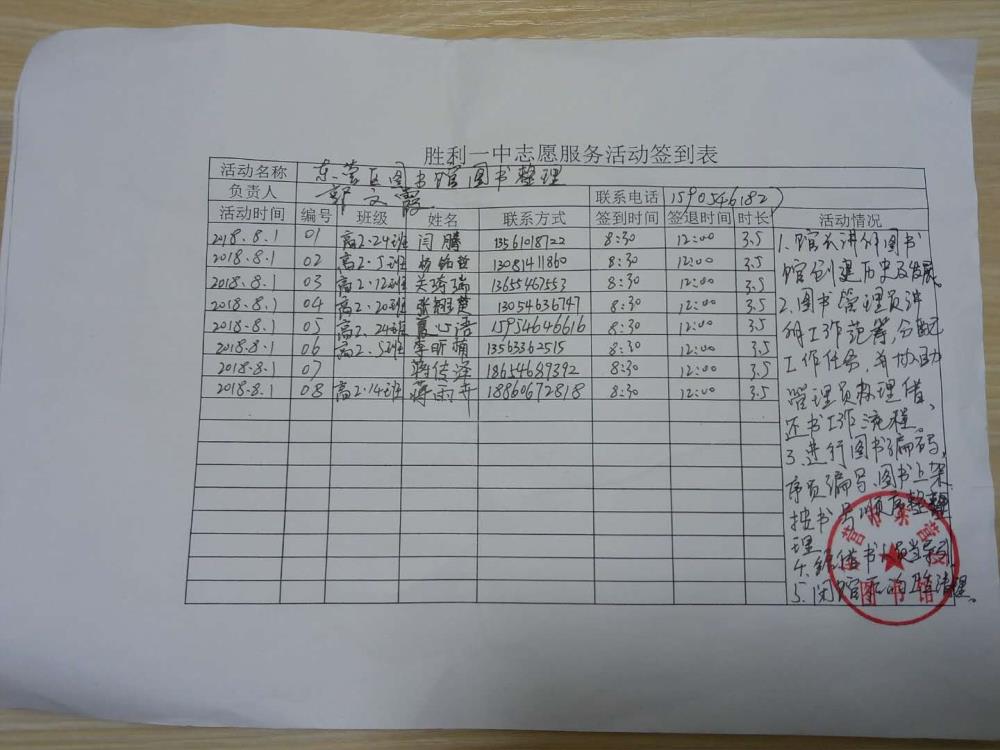 胜利一中志愿服务活动签到表
活动名称 东营区图书馆图书整理
负责人 郭文霞 联系电话 15905461827
活动时间 编号 班级 姓名 联系方式 签到时间 签退时间 时长 活动情况
2018.8.1 01 高2.24班 闫腾 13561018722 8:30 12:00 3.5
2018.8.1 02 高2.5班 杨铭 13081411860 8:30 12:00 3.5
2018.8.1 03 高2.12班 关琦瑞 13655467553 8:30 12:00 3.5
2018.8.1 04 高2.20班 张翔楚 13054636747 8:30 12:00 3.5
2018.8.1 05 高2.24班 心语 15954646616 8:30 12:00 3.5
2018.8.1 06 高2.5班 李昕楠 13563362515 8:30 12:00 3.5
2018.8.1 07 蒋传泽 18654687392 8:30 12:00 3.5
2018.8.1 08 高2.14班 蒋雨卉 18860672818 8:30 12:00 3.5
1.馆长讲解图书
馆创建历史及发展
2.图书管理员讲
解工作范筹,分配
工作任务,并协助
管理员办理借、
还书工作流程。
3.进行图书编码,
序员编号、图书上架
按书号顺序整
理
4.给借书人员当导引
5.闭馆后的卫生清理。
东营市东营区图书馆